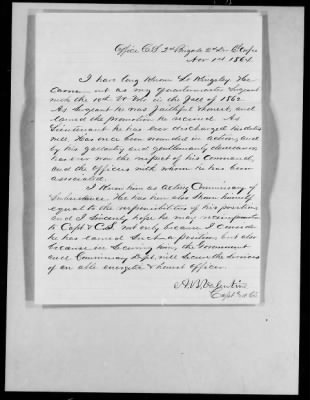 Office C.S. 2nd Brigade 2nd Div 6 Corps
Nov 1st 1864
I have long known Lt Kingsley He
came out as my Quartermaster Sergeant
with the 10th Vt Vols in the Fall of 1862
As Sergeant he was faithful & honest, and
earned the promotion he received. As
Lieutenant he has ever discharged his duties
well. Has once been wounded in action, and
by his gallantry and gentlemanly demeanor,
has ever won the respect of his Command,
and the Officers with whom he has been
associated.
I know him as Acting Commissary of
Subsistence. He has there also shown himself
equal to the responsibilities of his position,
and I sincerely hope he may receive promotion
to Capt & C.S. not only because I consider
he has earned such a position, but also
because in securing him, the Government
and Commissary Dept. will secure the services
of an able energetic & honest Officer.
A. B. Valentine
Capt & C.S.